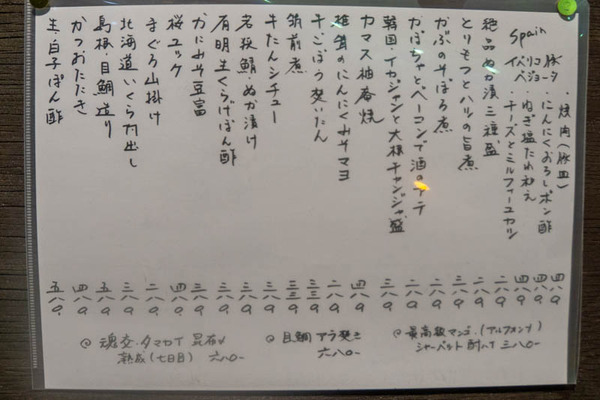 Spain
イベリコ豚
ベジョータ
・焼肉(豚皿)
・にんにくおろしポン酢 四八〇
・ねぎ塩たれ和え 四八〇
・チーズとミルフィーユカツ 四八〇
絶品ぬか漬三種盛 二八〇
とりもつとハツの旨煮 二八〇
かぶのそぼろ煮 二八〇
かぼちゃとベーコンで酒のアテ 二八〇
韓国・イカジャンと大根チャンジャ盛 三八〇
カマス柚庵焼 四八〇
雄鶏のにんにくみそマヨ 四八〇
干ごぼう焚いたん 三三〇
筑前煮 三三〇
牛たんシチュー 三八〇
若狭鯖ぬか漬け 三八〇
有明生くらげポン酢 三八〇
かにみそ豆富 三八〇
桜ユッケ 四八〇
まぐろ山掛け 二八〇
北海道いくら片出し 三八〇
島根・目鯛造り 四八〇
かつおたたき 四八〇
生・白子ぽん酢 五八〇
@最高級マンゴ・(アルフォンソ)
シャーベット 三八〇-
@目鯛アラ焚き
六八〇-
@魂交・タマカイ 昆布〆
熟成(七日目) 六八〇-